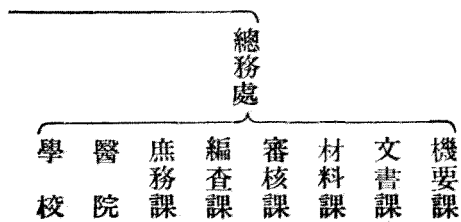 總務處
機要課
文書課
材料課
審核課
編查課
庶務課
醫院
學校